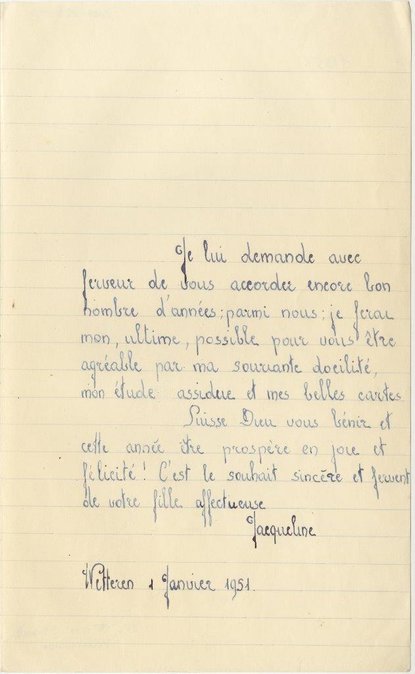 Je lui demande avec
ferveur de vous accorder encore bon
nombre d'années; parmi nous; je ferai
mon, ultime, possible pour vous être
agréable par ma souriante docilité,
mon étude assidue et mes belles cartes.
Puisse Dieu vous bénir et
cette année être prospère en joie et
félicité! C'est le souhait sincère et fervent
de votre fille affectueuse
Jacqueline
Wetteren 1 Janvier 1951.